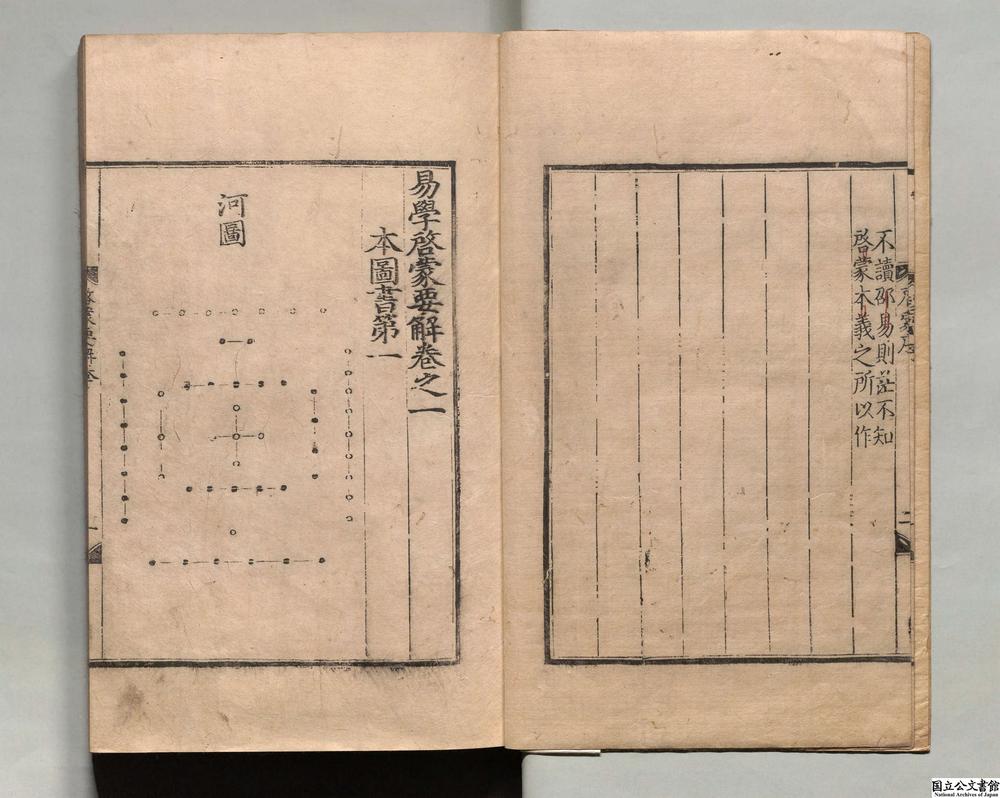 不讀邵易則茫不知
啓蒙本義之所以作
二
易學啓蒙要解卷之一
本圖書第一
河圖
国立公文書館
National Archives of Japan